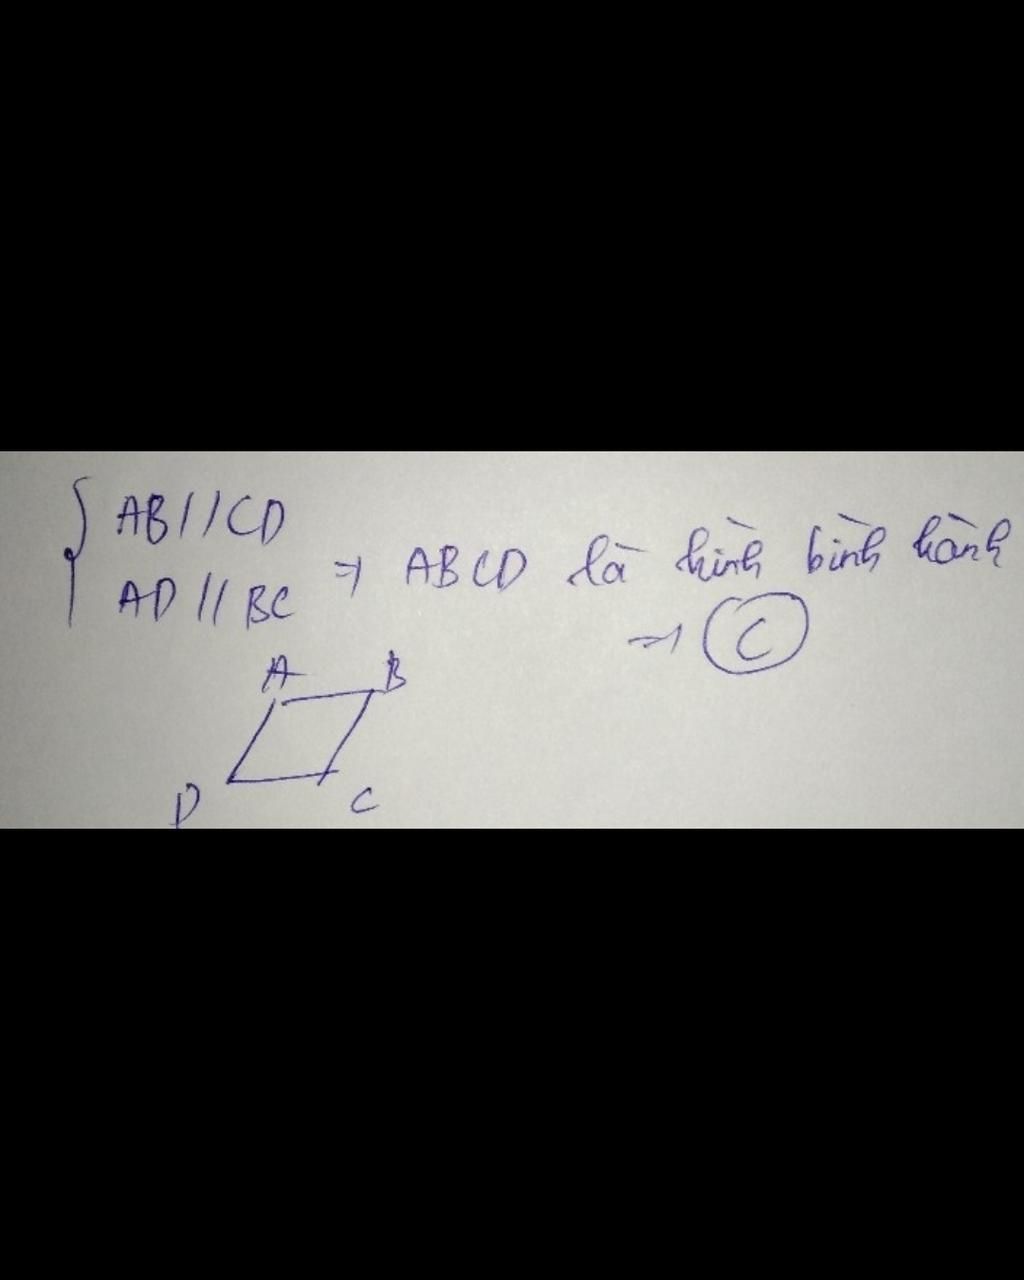 { AB // CD
AD // BC ⇒ ABCD là hình bình hành
⇒ C
A B
D C